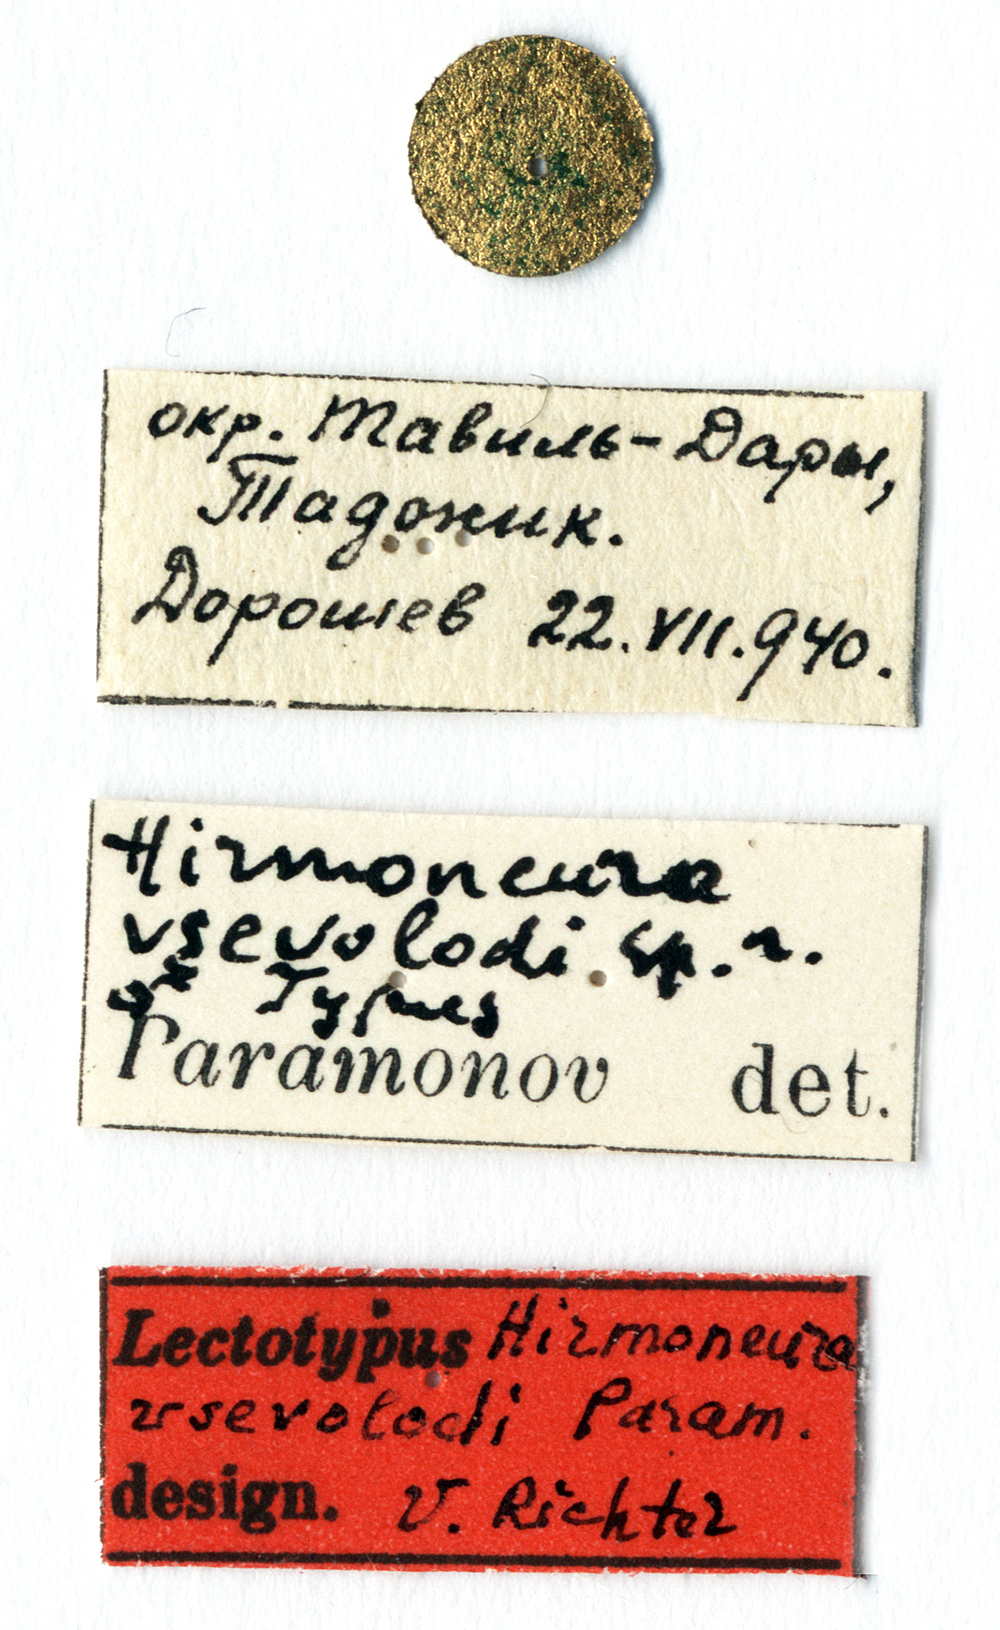 окр. Тавиль-Дары,
Таджик.
Дорошев 22.VII.940.
Hirmoneura
vsevolodi sp. n.
♂ Typus
Paramonov det.
Lectotypus Hirmoneura
vsevolodi Param.
design. V. Richter